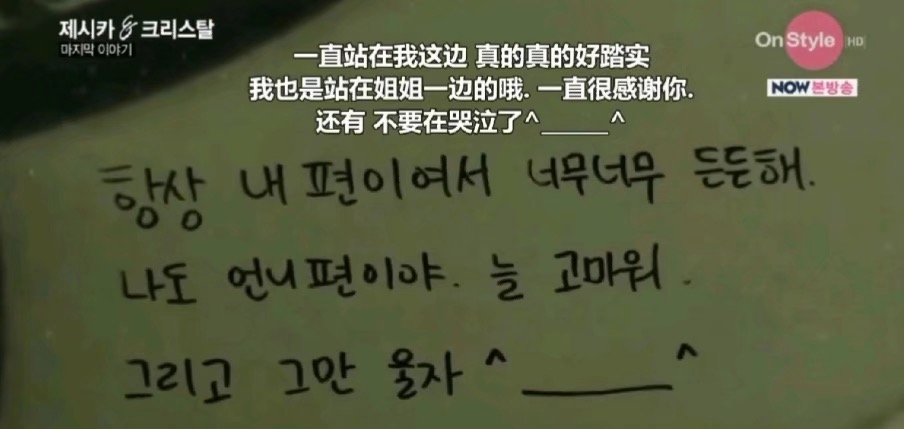 제시카 & 크리스탈
마지막 이야기
On Style HD
NOW 본방송
一直站在我这边 真的真的好踏实
我也是站在姐姐一边的哦. 一直很感谢你.
还有 不要在哭泣了^_____^
항상 내 편이여서 너무너무 든든해.
나도 언니편이야. 늘 고마워.
그리고 그만 울자 ^______^